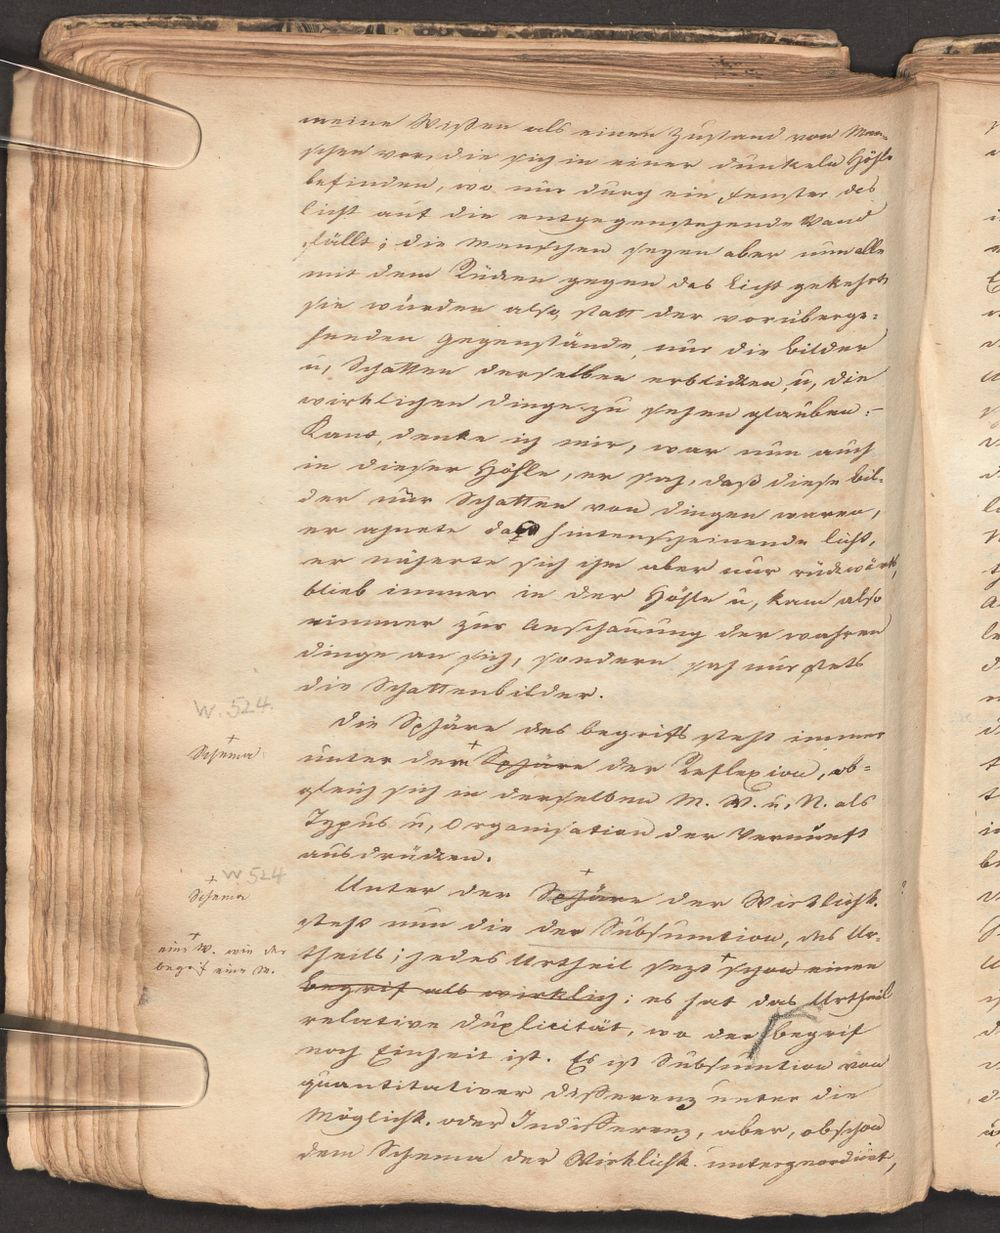 meine Wissen als einen Zustand von Men-
schen vor, die sich in einer dunkeln Höhle
befinden, wo nur durch ein Fenster das
Licht auf die entgegenstehende Wand
fällt; die Menschen sehen aber nun alle
mit dem Rücken gegen das Licht gekehrt
sie würden also statt der vorüberge-
henden Gegenstände nur die Bilder
u, Schatten derselben erblicken, u, die
wirklichen Dinge zu sehen glauben:-
Kant, denke ich mir, war nun auch
in dieser Höhle, er sah, daß diese Bil-
der nur Schatten von Dingen waren,
er ahnete das hintenscheinende Licht,
er näherte sich ihm aber nur rückwärts,
blieb immer in der Höhle u, kam also
nimmer zur Anschauung der wahren
Dinge an sich, sondern sah nur stets
die Schattenbilder.
W. 524.
Die Sphäre des Begriffs steht immer
+
Schema
unter dem + Sphäre der Reflexion, ob-
gleich sich in derselben M. W. u, N. als
Typus u, Organisation der Vernunft
ausdrücken.
W 524
+
Schema
Unter der + Sphäre der Wirklichk.
steht nun die der Subsumtion, des Ur-
+
eine W. wie der
Begrif eine M.
theils; jedes Urtheil sezt + schon einen
Begrif als wirklich; es hat das Urtheil
relative Duplicität, wo der Begrif
noch Einheit ist. Es ist Subsumtion von
quantitativer Differenz unter die
Möglichk. oder Indifferenz, aber, obschon
dem Schema der Wirklichk. untergeordnet,